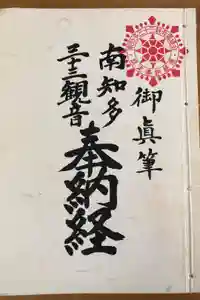 御眞筆
南知多
三十三観音
奉納経